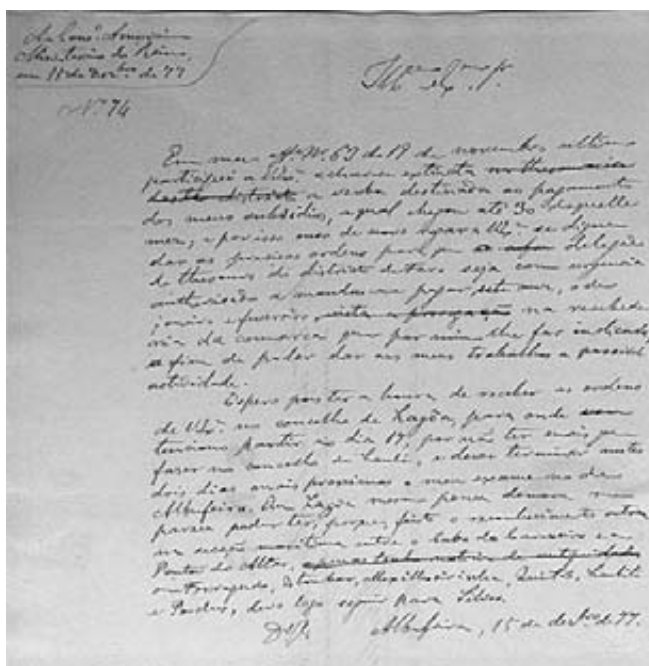 Ministerio do Reino,
em 15 de dez.bro de 77
N.º 74
Em meu off.º N.º 69 de 19 de novembro ultimo
participei a V. Ex.ª achar-se extincta na thesouraria
deste districto a verba destinada ao pagamento
dos meus subsidios, a qual chegou até 30 daquelle
mez, e por isso ouso de novo a V. Ex.ª se digne
dar as precisas ordens para que delegado
do thesouro do districto de Faro seja com urgencia
authorisado a mandar-me pagar, este mez, o de
janeiro e fevereiro, na recebedo
ria da comarca que por mim lhe for indicada,
a fim de poder dar aos meus trabalhos a possivel
actividade.
Espero pois ter a honra de receber as ordens
de V. Ex.ª no concelho de Lagôa, para onde
tenciono partir no dia 19, por não ter mais que
fazer no concelho de Loulé, e dever terminar nestes
dois dias mais proximos o meu exame no de
Albufeira. Em Lagôa mesmo pouca demora me
parece poder ter, porque, feito o reconhecimento
na secção maritima entre o Cabo do Carvoeiro e a
Ponta do Altar,
em Ferragudo, Estombar,
e Porches, devo logo seguir para Silves.
Albufeira, 15 de dez.bro de 77.